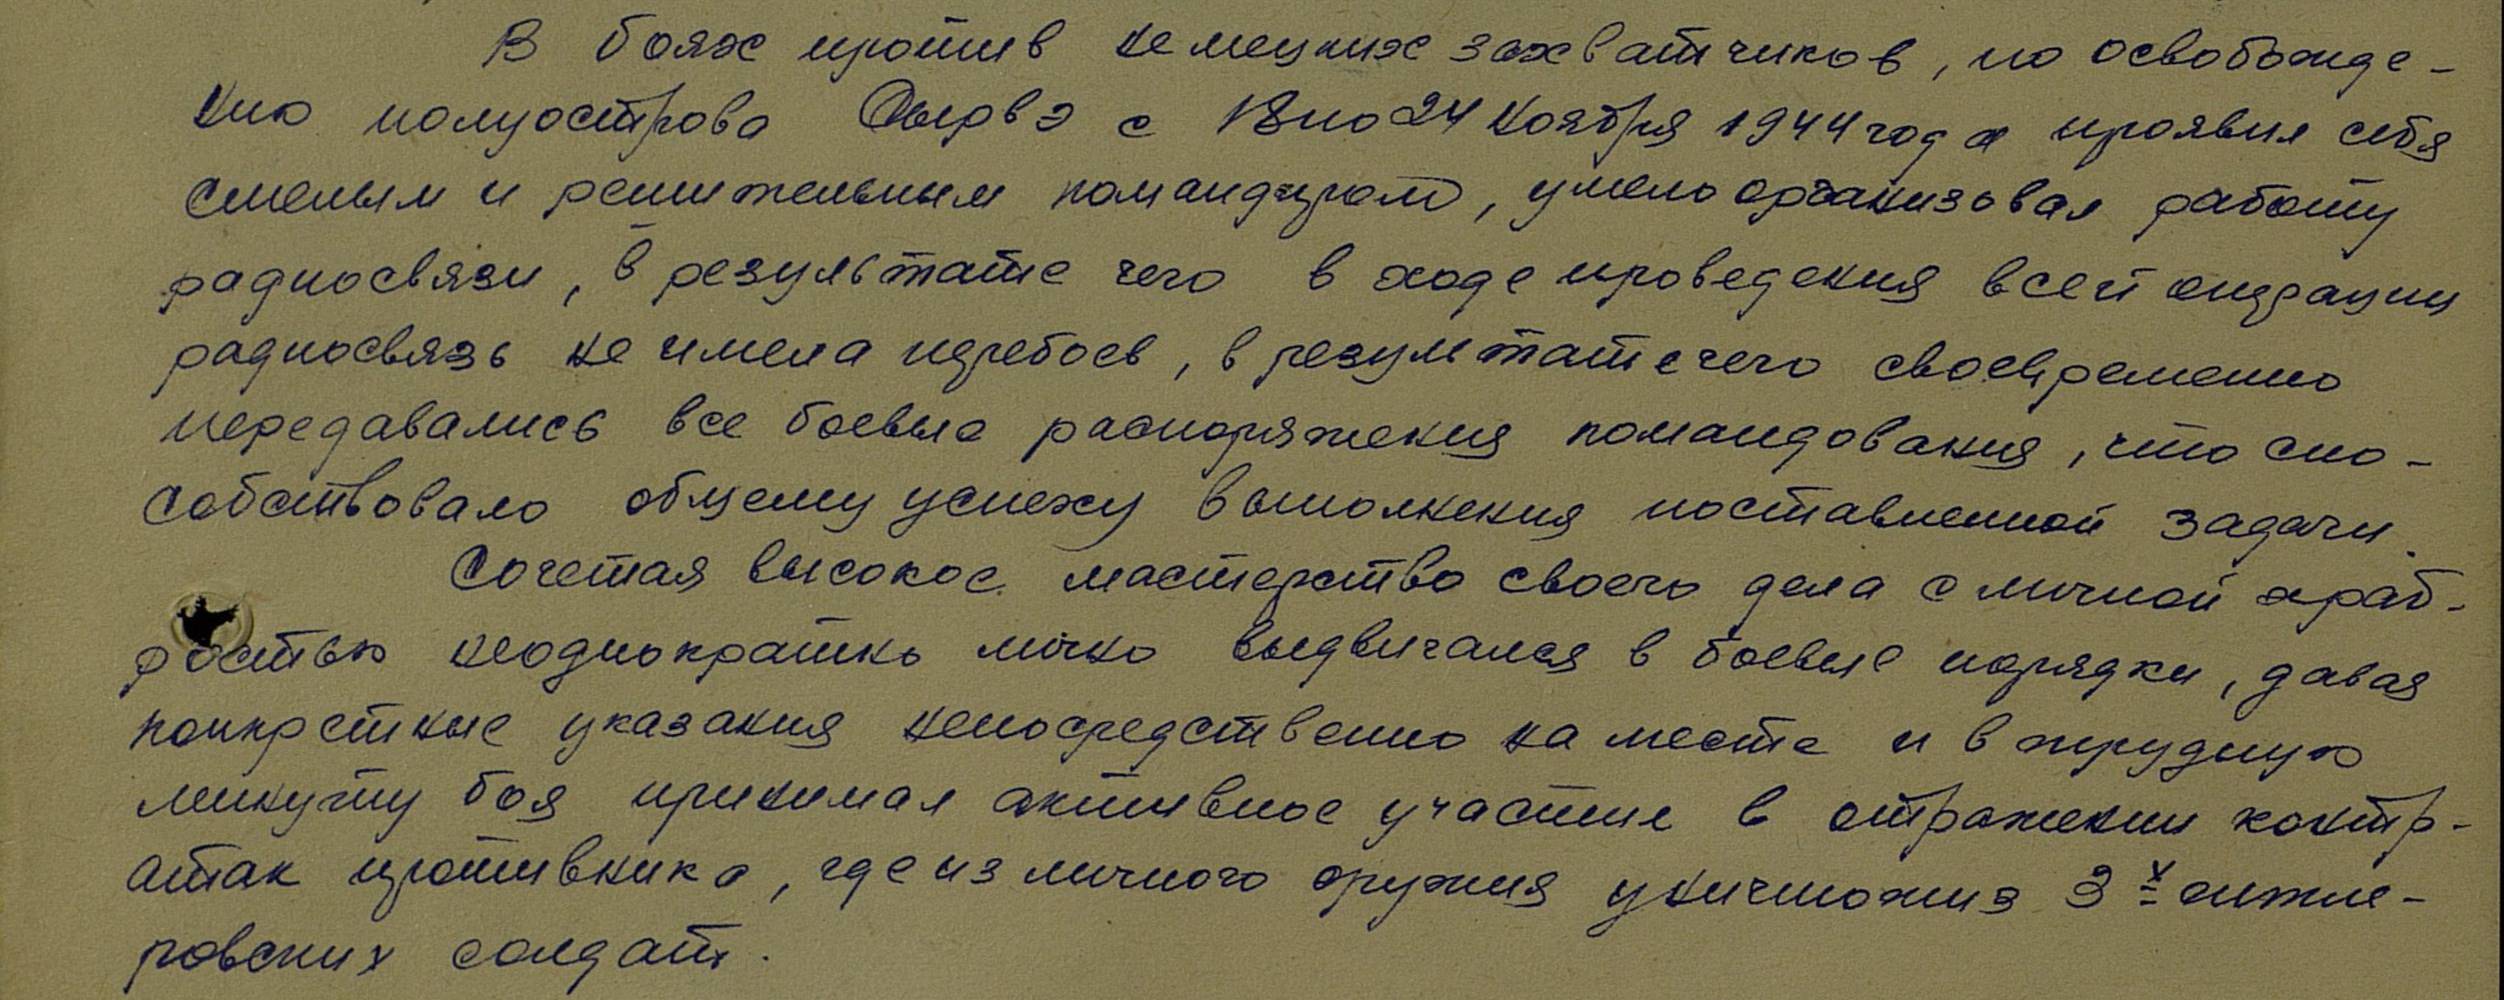 В боях против немецких захватчиков, по освобожде-
нию полуострова Сырвэ с 18 по 24 ноября 1944 года проявил себя
смелым и решительным командиром, умело организовал работу
радиосвязи, в результате чего в ходе проведения всей операции
радиосвязь не имела перебоев, в результате чего своевременно
передавались все боевые распоряжения командования, что спо-
собствовало общему успеху выполнения поставленной задачи.
Сочетая высокое мастерство своего дела с личной храб-
ростью неоднократно лично выдвигался в боевые порядки, давая
конкретные указания непосредственно на месте и в трудную
минуту боя принимал активное участие в отражении контр-
атак противника, где из личного оружия уничтожил 3-х гитле-
ровских солдат.